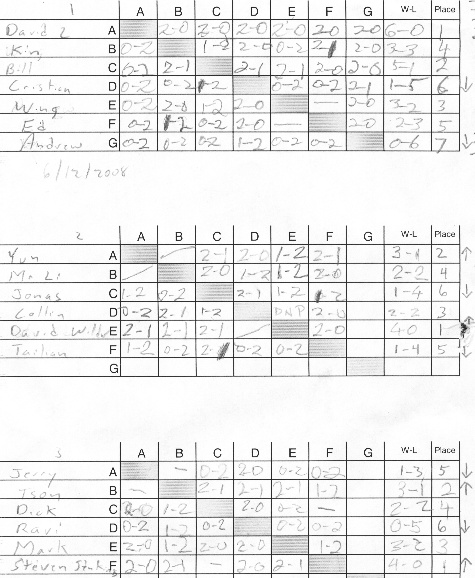 1 A B C D E F G W-L Place
David Z A 2-0 2-0 2-0 2-0 2-0 2-0 6-0 1
King B 0-2 1-2 2-0 0-2 2-0 3-3 4
Bill C 0-2 2-1 2-1 2-1 2-0 2-0 5-1 2
Cristian D 0-2 0-2 1-2 0-2 0-2 2-1 1-5 6 ↓
Wing E 0-2 2-0 1-2 2-0 — 2-0 3-2 3
Ed F 0-2 1-2 0-2 2-0 — 2-0 2-3 5
Andrew G 0-2 0-2 0-2 1-2 0-2 0-2 0-6 7 ↓
6/12/2008
2 A B C D E F G W-L Place
Yun A 2-1 2-0 1-2 2-1 3-1 2 ↑
Mr Li B 2-0 1-2 1-2 2-0 2-2 4
Jonas C 1-2 0-2 2-1 1-2 1-2 1-4 6 ↓
Collin D 0-2 2-1 1-2 DNP 2-0 2-2 3
David E 2-1 2-1 2-1 2-0 4-0 1 ↑
F 1-2 0-2 0-2 0-2 1-4 5 ↓
G
3 A B C D E F G W-L Place
Jerry A — 0-2 2-0 0-2 0-2 1-3 5 ↓
Tson B — 2-1 2-1 2-1 1-2 3-1 2 ↑
Dick C 2-0 1-2 2-0 0-2 — 2-2 4
Ravi D 0-2 1-2 0-2 0-2 0-2 0-5 6 ↓
Mark E 2-0 1-2 2-0 2-0 1-2 3-2 3
Steven F 2-0 2-1 — 2-0 2-1 4-0 1 ↑